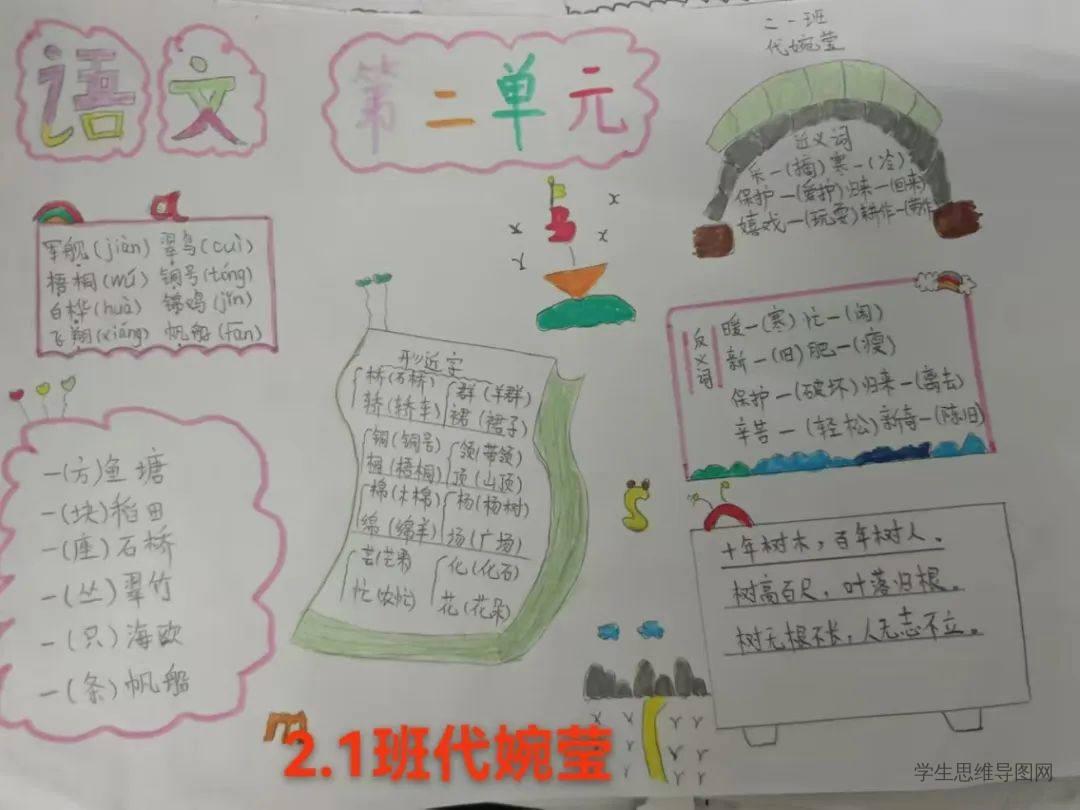 语文
第二单元
二一班
代婉莹
军舰(jiàn) 翠鸟(cuì)
梧桐(wú) 铜号(tóng)
白桦(huà) 锦鸡(jǐn)
飞翔(xiáng) 帆船(fān)
一(方)鱼塘
一(块)稻田
一(座)石桥
一(丛)翠竹
一(只)海欧
一(条)帆船
形近字
桥(石桥) 群(羊群)
轿(轿车) 裙(裙子)
铜(铜号) 领(带领)
桐(梧桐) 顶(山顶)
棉(木棉) 杨(杨树)
绵(绵羊) 场(广场)
芒(芒果) 化(化石)
忙(农忙) 花(花朵)
近义词
采一(摘) 寒一(冷)
保护一(爱护) 归来一(回来)
嬉戏一(玩耍) 耕作一(劳作)
反义词
暖一(寒) 忙一(闲)
新一(旧) 肥一(瘦)
保护一(破坏) 归来一(离去)
辛苦一(轻松) 新奇一(陈旧)
十年树木，百年树人。
树高百尺，叶落归根。
树无根不长，人无志不立。
2.1班代婉莹
学生思维导图网